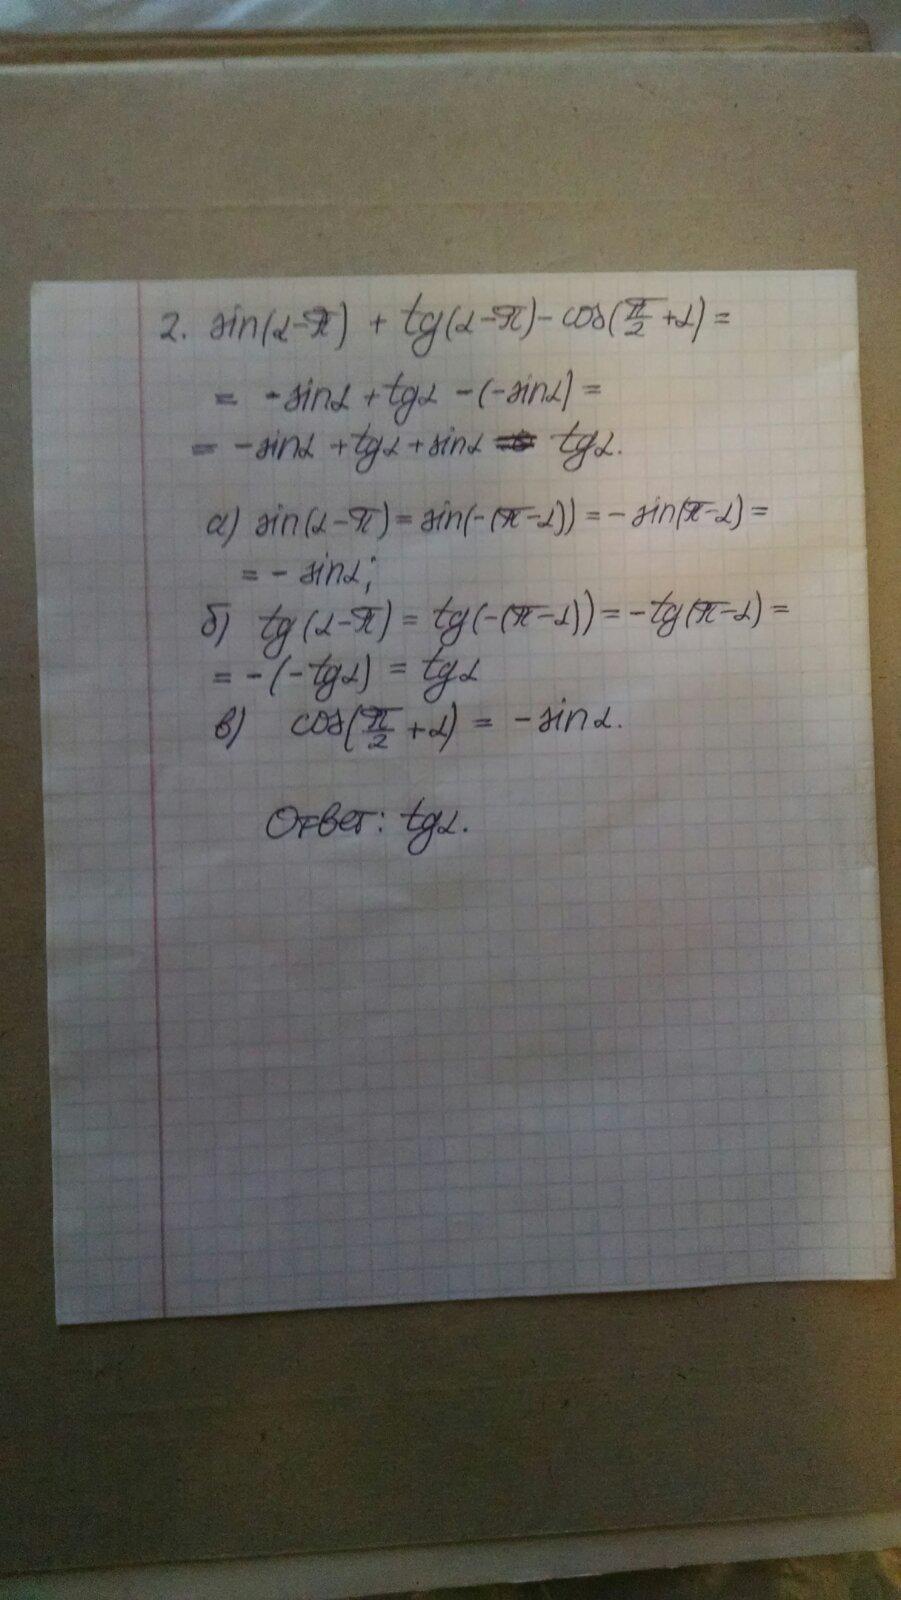 2. sin(α-π) + tg(α-π) - cos(π/2 +α) =
= -sinα + tgα - (-sinα) =
= -sinα + tgα + sinα = tgα.
а) sin(α-π) = sin(-(π-α)) = - sin(π-α) =
= - sinα;
б) tg(α-π) = tg(-(π-α)) = -tg(π-α) =
= -(-tgα) = tgα
в) cos(π/2 +α) = -sinα.
Ответ: tgα.